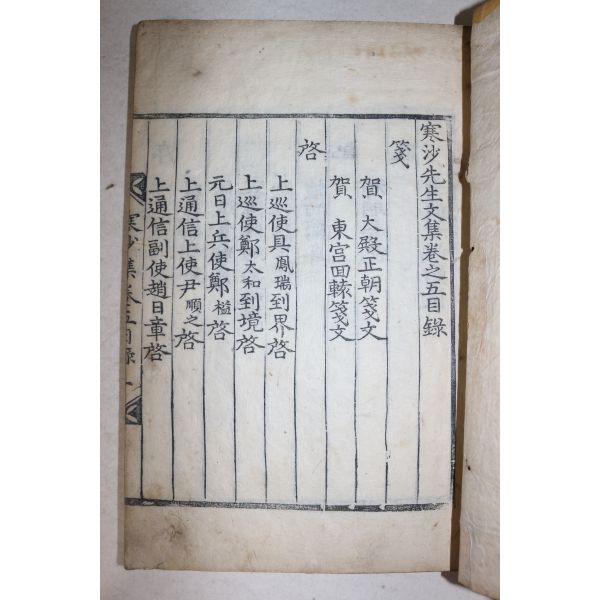 寒沙先生文集卷之五目錄
箋
賀 大殿正朝箋文
賀 東宮回轅箋文
啓
上巡使具鳳瑞到界啓
上巡使鄭太和到境啓
元日上兵使鄭榏啓
上通信上使尹順之啓
上通信副使趙日章啓
寒沙集卷五目錄 一